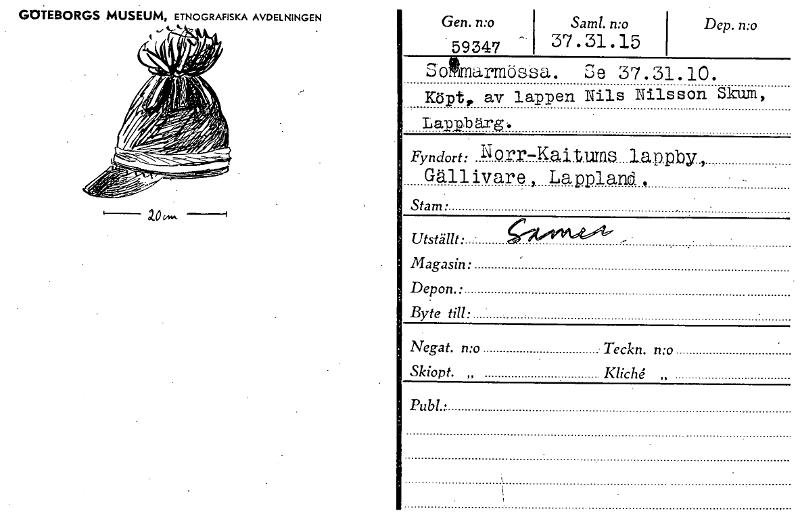 GÖTEBORGS MUSEUM, ETNOGRAFISKA AVDELNINGEN
20cm
Gen. n:o Saml. n:o Dep. n:o
59347 37.31.15
Sommarmössa. Se 37.31.10.
Köpt, av lappen Nils Nilsson Skum,
Lappbärg.
Fyndort: Norr-Kaitums lappby,
Gällivare, Lappland.
Stam:
Utställt: Samer
Magasin:
Depon.:
Byte till:
Negat. n:o Teckn. n:o
Skiopt. „ Kliché „
Publ.: